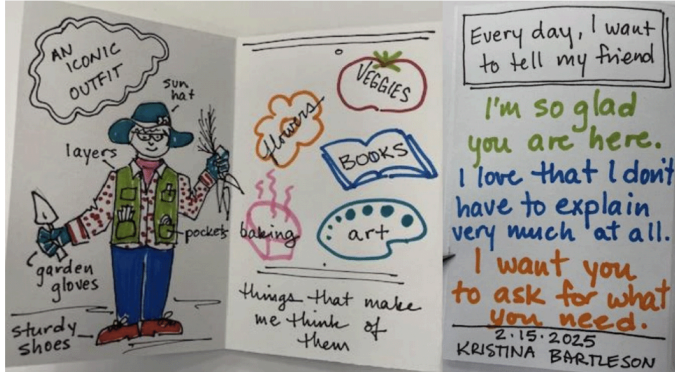 AN
ICONIC
OUTFIT
sun
hat
layers
pockets
garden
gloves
sturdy
shoes
VEGGIES
flowers
BOOKS
baking
art
things that make
me think of
them
Every day, I want
to tell my friend
I'm so glad
you are here.
I love that I don't
have to explain
very much at all.
I want you
to ask for what
you need.
2.15.2025
KRISTINA BARTLESON